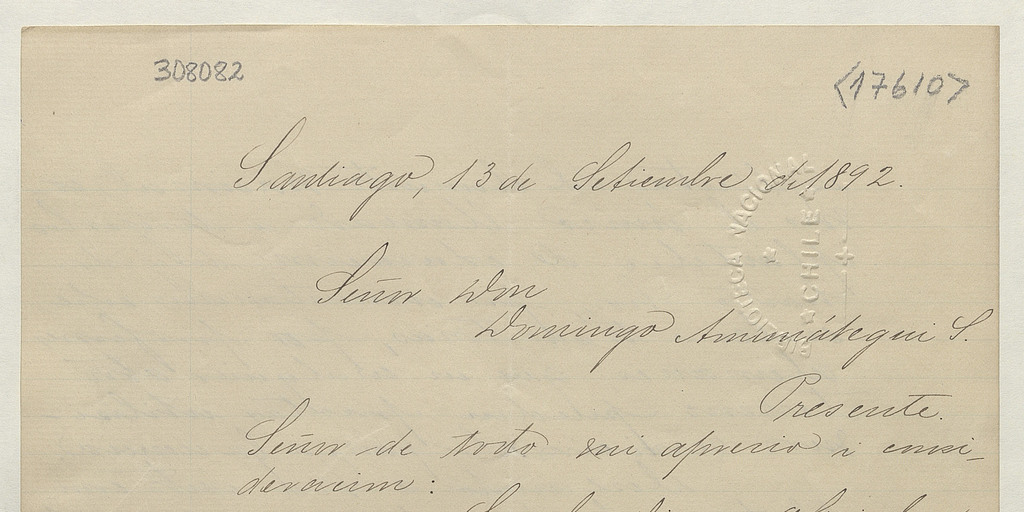 308082
<17610>
Santiago, 13 de Setiembre de 1892.
Señor Don
Domingo Amunátegui S.
Presente.
Señor de todo mi aprecio i consi-
deracion:
BIBLIOTECA NACIONAL
CHILE